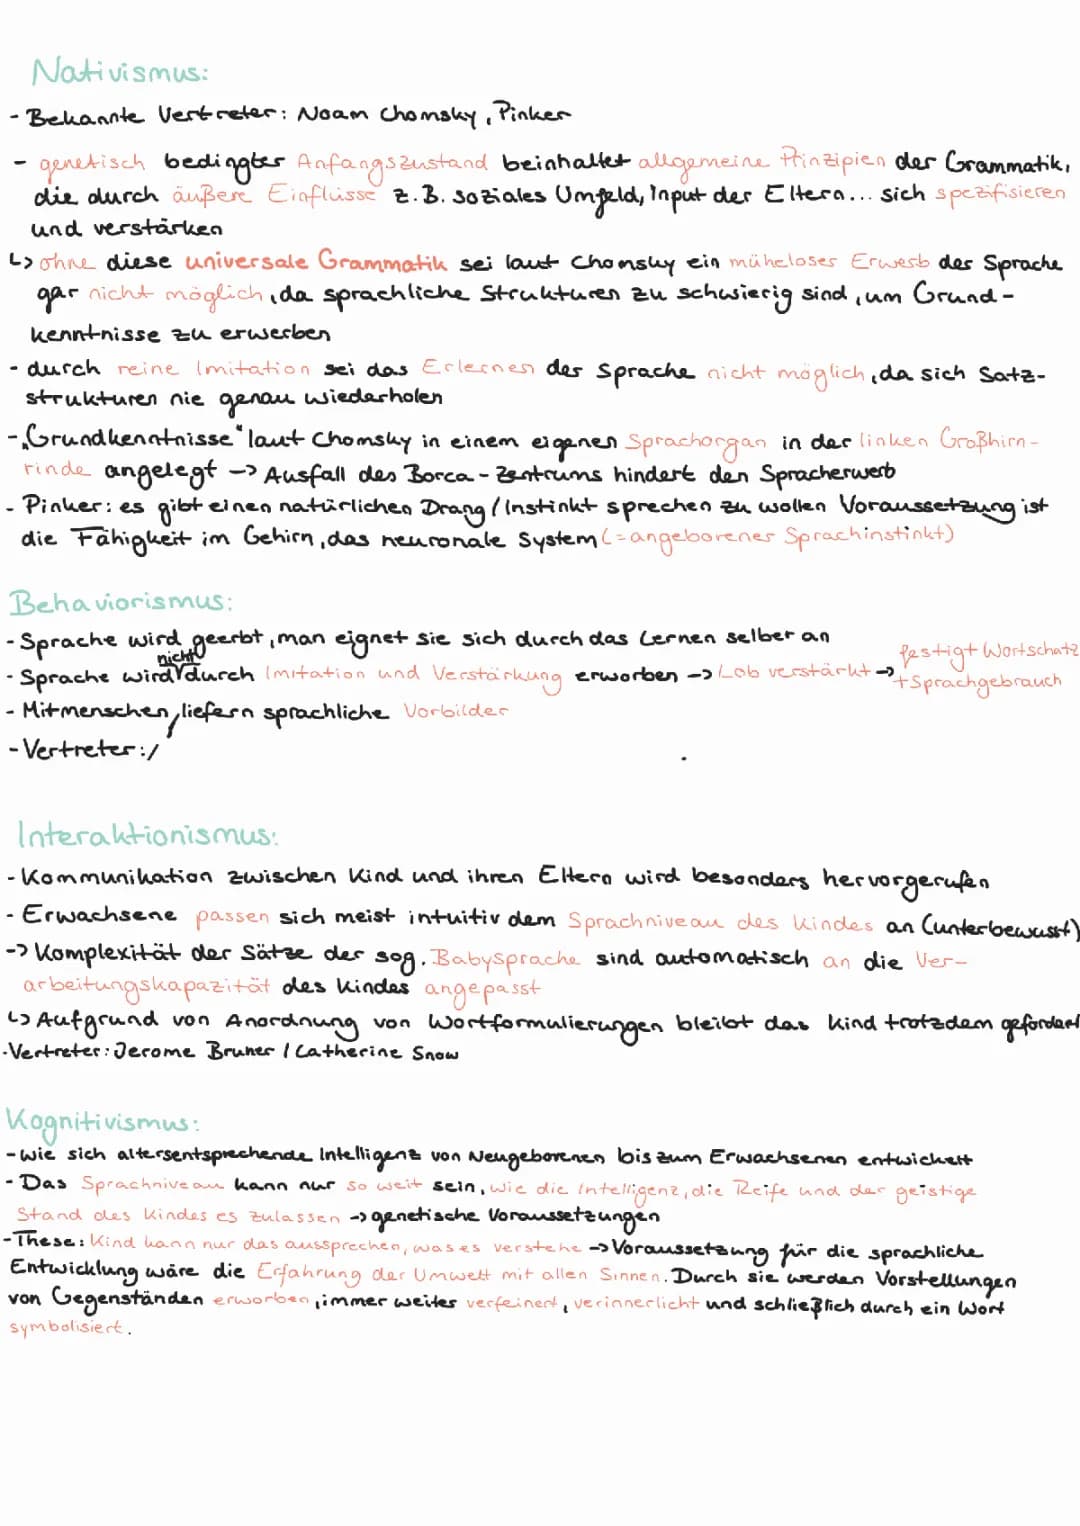 Nativismus:
- Bekannte Vertreter: Noam Chomsky, Pinker
- genetisch bedingter Anfangszustand beinhaltet allgemeine Prinzipien der Grammatik,
die durch äußere Einflüsse z.B. soziales Umfeld, Input der Eltern... sich spezifisieren
und verstärken
↳ ohne diese universale Grammatik sei laut Chomsky ein müheloses Erwerb der Sprache
gar nicht möglich, da sprachliche Strukturen zu schwierig sind, um Grund-
kenntnisse zu erwerben
- durch reine Imitation sei das Erlernen der Sprache nicht möglich, da sich Satz-
strukturen nie genau wiederholen
- „Grundkenntnisse" laut Chomsky in einem eigenen Sprachorgan in der linken Großhirn-
rinde angelegt -> Ausfall des Borca-Zentrums hindert den Spracherwerb
- Pinker: es gibt einen natürlichen Drang / Instinkt sprechen zu wollen Voraussetzung ist
die Fähigkeit im Gehirn, das neuronale System (= angeborener Sprachinstinkt)
Behaviorismus:
- Sprache wird geerbt, man eignet sie sich durch das Lernen selber an
nicht
- Sprache wird durch Imitation und Verstärkung erworben -> Lob verstärkt -> festigt Wortschatz
+ Sprachgebrauch
- Mitmenschen, liefern sprachliche Vorbilder
- Vertreter: /
Interaktionismus:
- Kommunikation zwischen Kind und ihren Eltern wird besonders hervorgerufen
- Erwachsene passen sich meist intuitiv dem Sprachniveau des Kindes an (unterbewusst)
-> Komplexität der Sätze der sog. Babysprache sind automatisch an die Ver-
arbeitungskapazität des Kindes angepasst
↳ Aufgrund von Anordnung von Wortformulierungen bleibt das Kind trotzdem gefordert
- Vertreter: Jerome Bruner / Catherine Snow
Kognitivismus:
- wie sich altersentsprechende Intelligenz von Neugeborenen bis zum Erwachsenen entwickelt
- Das Sprachniveau kann nur so weit sein, wie die Intelligenz, die Reife und der geistige
Stand des Kindes es zulassen -> genetische Voraussetzungen
- These: Kind kann nur das aussprechen, was es verstehe -> Voraussetzung für die sprachliche
Entwicklung wäre die Erfahrung der Umwelt mit allen Sinnen. Durch sie werden Vorstellungen
von Gegenständen erworben, immer weiter verfeinert, verinnerlicht und schließlich durch ein Wort
symbolisiert.